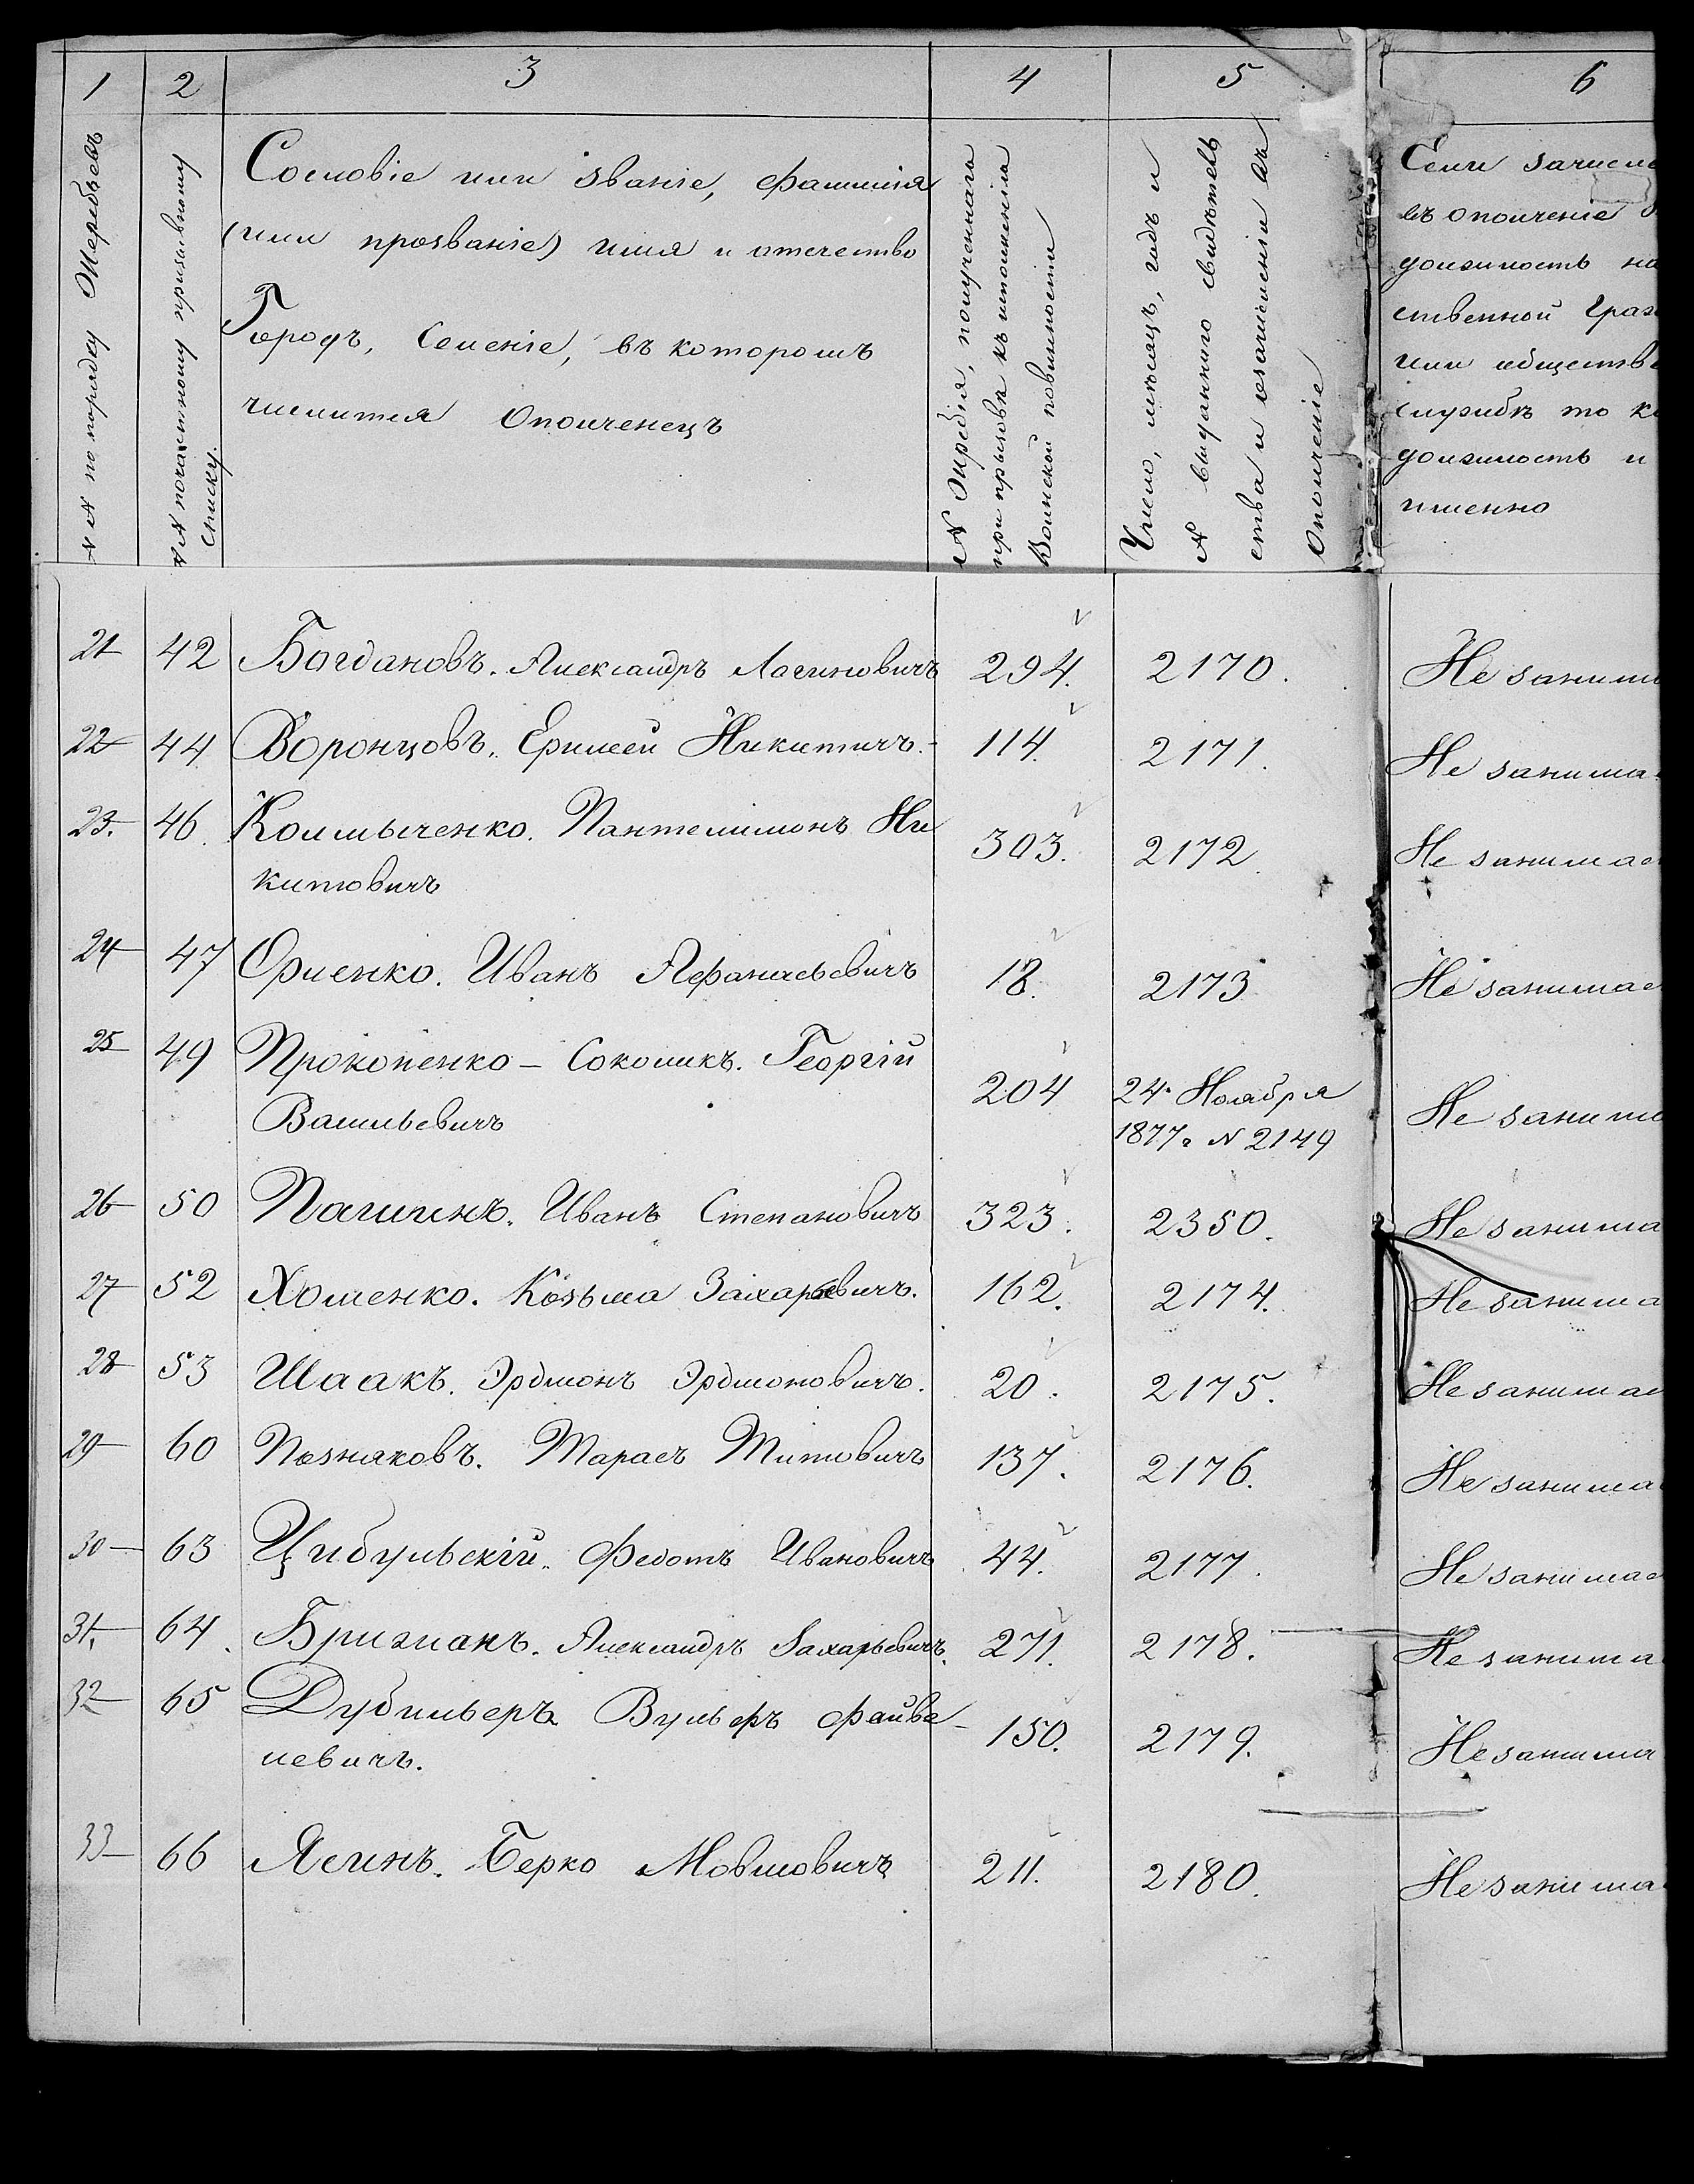 1 2 3 4 5 6
№№ по порядку Жеребьевъ
№№ по участковому призывному
списку.
Сословіе или званіе, фамилія
(или прозваніе) имя и отчество
Городъ, Селеніе, въ которомъ
числится Ополченецъ
№ Жребія, полученнаго
при призывѣ къ исполненію
Воинской повинности
Число, мѣсяцъ, годъ и
№ выданнаго свидѣтель
ства и о зачисленіи въ
Ополченіе
Если зачисле
въ ополченіе
должность на
ственной Граж
или обществе
службѣ то ка
должность и
именно
21 42 Богдановъ. Александръ Логиновичъ 294. 2170. Не занима
22 44 Воронцовъ. Ермолей Никитичъ. 114. 2171. Не занима
23. 46. Колмыченко. Пантелимонъ Ни 303. 2172. Не занимае
китовичъ
24 47 Орленко. Иванъ Афанасьевичъ 18. 2173 Не занимае
25 49 Прокопенко - Соколикъ. Георгій 204 24 Ноября Не занима
Васильевичъ 1877 г № 2149
26 50 Пашинъ. Иванъ Степановичъ 323. 2350. Не занима
27 52 Хоменко. Козьма Захарьевичъ. 162. 2174. Не занима
28 53 Шаакъ. Эрдмонъ Эрдмоновичъ. 20. 2175. Не занимае
29 60 Позняковъ. Тарасъ Титовичъ 137. 2176. Не занима
30 63 Цибульскій. Федотъ Ивановичъ 44. 2177. Не занимае
31. 64. Бригманъ. Александръ Захарьевичъ. 271. 2178. Не занима
32 65 Дубильеръ Вульфъ Файве- 150. 2179. Не занима
левичъ.
33 66 Ясинъ. Берко Мовшовичъ 211. 2180. Не занима